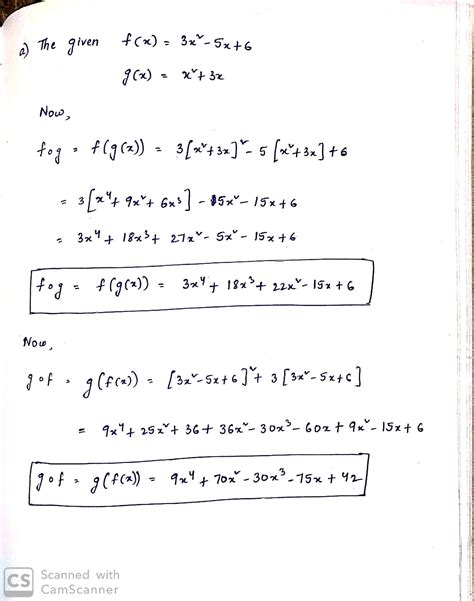 a) The given f(x) = 3x² - 5x + 6
g(x) = x² + 3x
Now,
fog = f(g(x)) = 3[x²+3x]² - 5[x²+3x] + 6
= 3[x⁴ + 9x² + 6x³] - 5x² - 15x + 6
= 3x⁴ + 18x³ + 27x² - 5x² - 15x + 6
fog = f(g(x)) = 3x⁴ + 18x³ + 22x² - 15x + 6
Now,
gof = g(f(x)) = [3x²-5x+6]² + 3[3x²-5x+6]
= 9x⁴ + 25x² + 36 + 36x² - 30x³ - 60x + 9x² - 15x + 6
gof = g(f(x)) = 9x⁴ + 70x² - 30x³ - 75x + 42
CS Scanned with
CamScanner